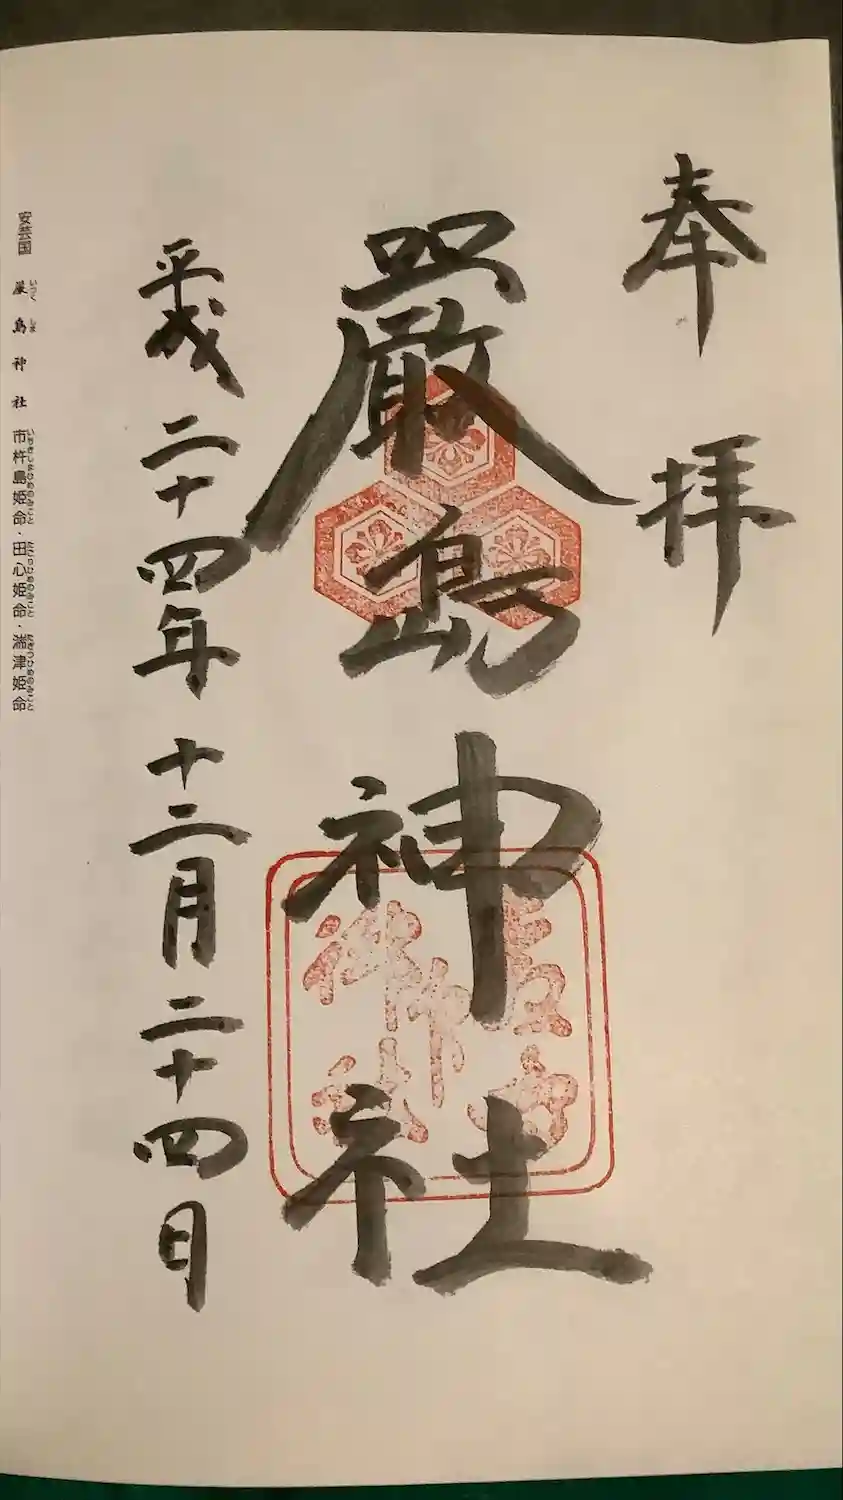 奉拝
嚴島神社
平成二十四年十二月二十四日
安芸国 厳島神社 市杵島姫命・田心姫命・湍津姫命